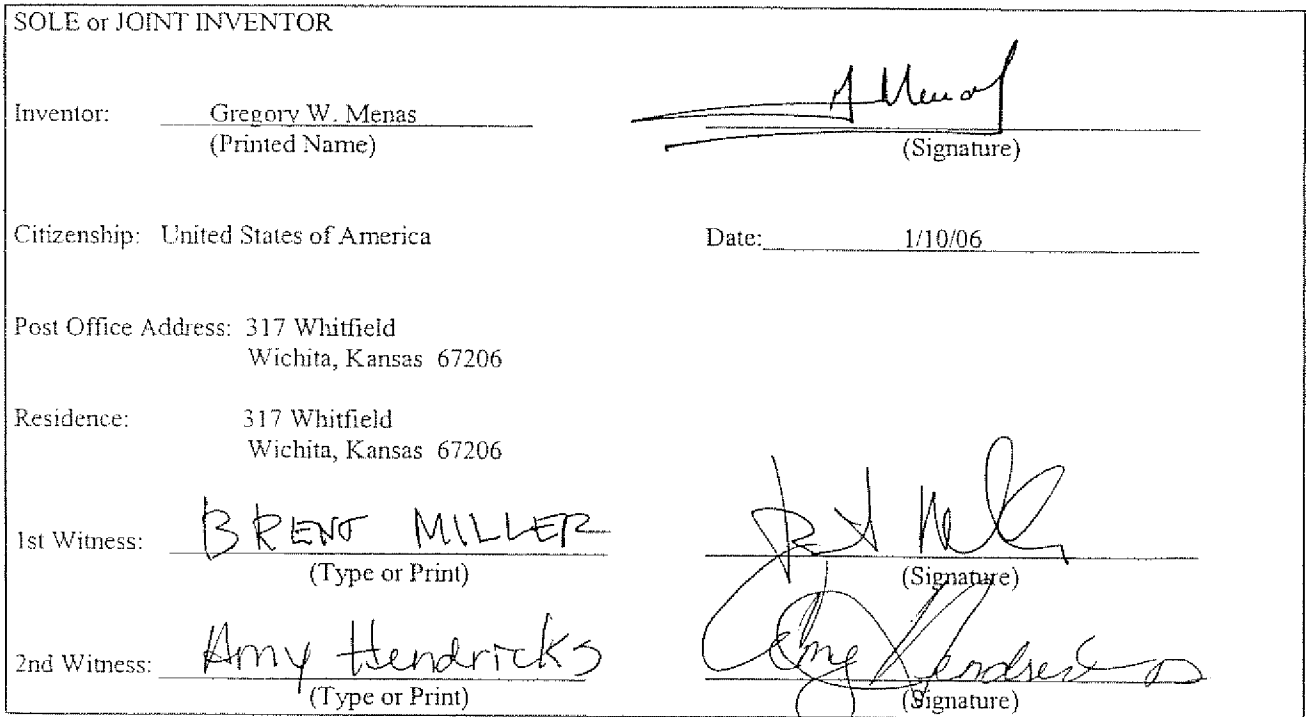 SOLE or JOINT INVENTOR
Inventor: Gregory W. Menas
(Printed Name) (Signature)
Citizenship: United States of America Date: 1/10/06
Post Office Address: 317 Whitfield
Wichita, Kansas 67206
Residence: 317 Whitfield
Wichita, Kansas 67206
1st Witness: BRENT MILLER
(Type or Print) (Signature)
2nd Witness: Amy Hendricks Amy Hendricks
(Type or Print) (Signature)